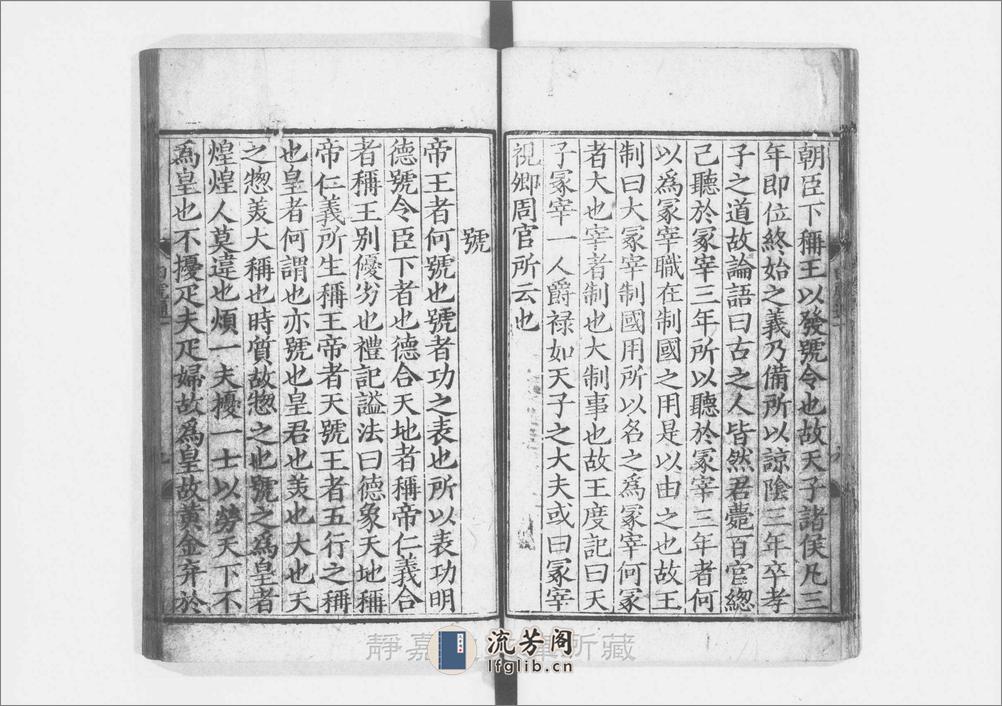 朝臣下稱王以發號令也故天子諸侯凡三
年即位終始之義乃備所以諒陰三年卒孝
子之道故論語曰古之人皆然君薨百官緫
己聽於冡宰三年所以聽於冡宰三年者何
以爲冡宰職在制國之用是以由之也故王
制曰大冡宰制國用所以名之爲冡宰何冡
者大也宰者制也大制事也故王度記曰天
子冡宰一人爵禄如天子之大夫或曰冡宰
視卿周官所云也
號
帝王者何號也號者功之表也所以表功明
德號令臣下者也德合天地者稱帝仁義合
者稱王别優劣也禮記謚法曰德象天地稱
帝仁義所生稱王帝者天號王者五行之稱
也皇者何謂也亦號也皇君也美也大也天
之惣美大稱也時質故惣之也號之爲皇者
煌煌人莫違也煩一夫擾一士以勞天下不
爲皇也不擾疋夫疋婦故爲皇故黄金弃於
靜嘉
所藏
流芳阁
lfglib.cn